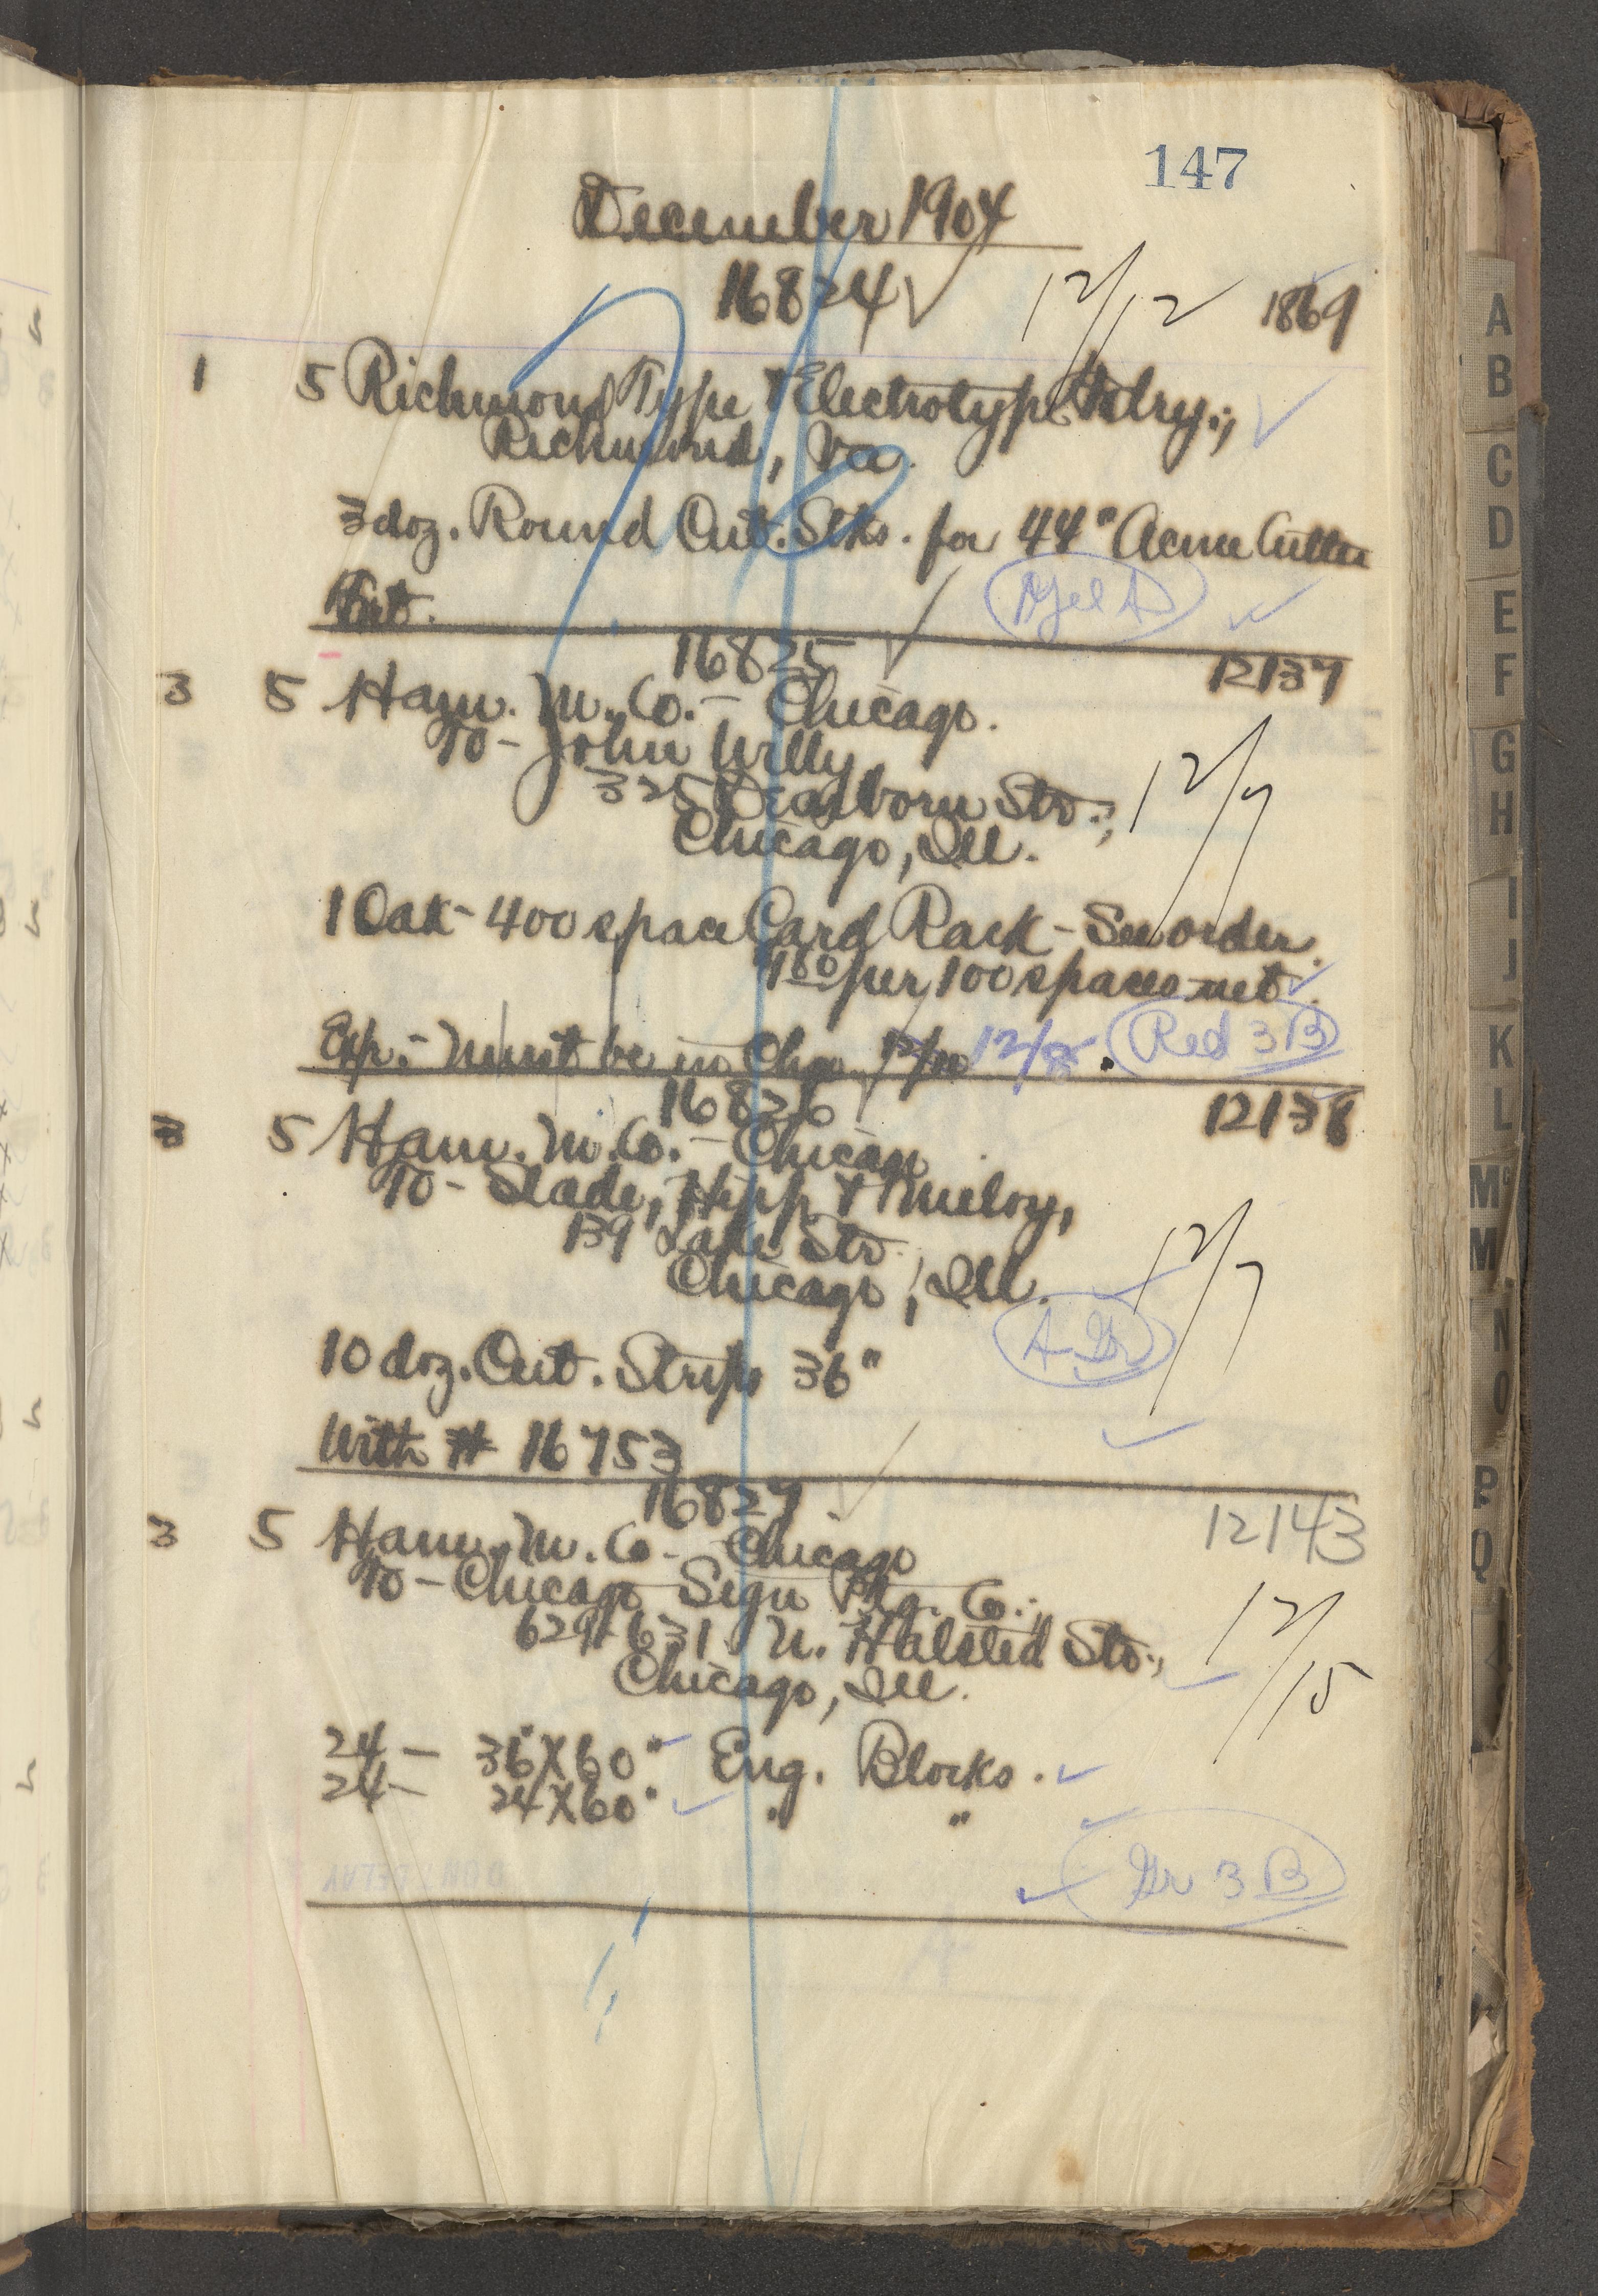 147
December 1904
16824 12/12 1869
1 5 Richmond Type & Electrotype Fdry.,
Richmond, Va.
3 doz. Round Cut. Stks. for 44" Acme Cutter
Frt.
16825 12137
3 5 Ham. M. Co. - Chicago.
To - John Willy
325 Dearborn Str.,
Chicago, Ill. 12/7
1 Oak - 400 space Card Rack - See order.
per 100 spaces net.
Exp. - Must be in Chgo. 12/10 12/8. Red 3 B
16826 12138
3 5 Ham. M. Co. - Chicago
To - Slade, Hipp & Meloy,
139 Lake Str.
Chicago, Ill. 12/7
10 doz. Cut. Strips 36"
With # 16753
16827 12143
3 5 Ham. M. Co. - Chicago
To - Chicago Sign Ptg. Co.,
629-631 N. Halsted Str.,
Chicago, Ill. 12/15
24 - 36"X60" Eng. Blocks.
24 - 24X60" " "
Gr 3 B
A
B
C
D
E
F
G
H
I
J
K
L
Mc
M
N
O
P
Q